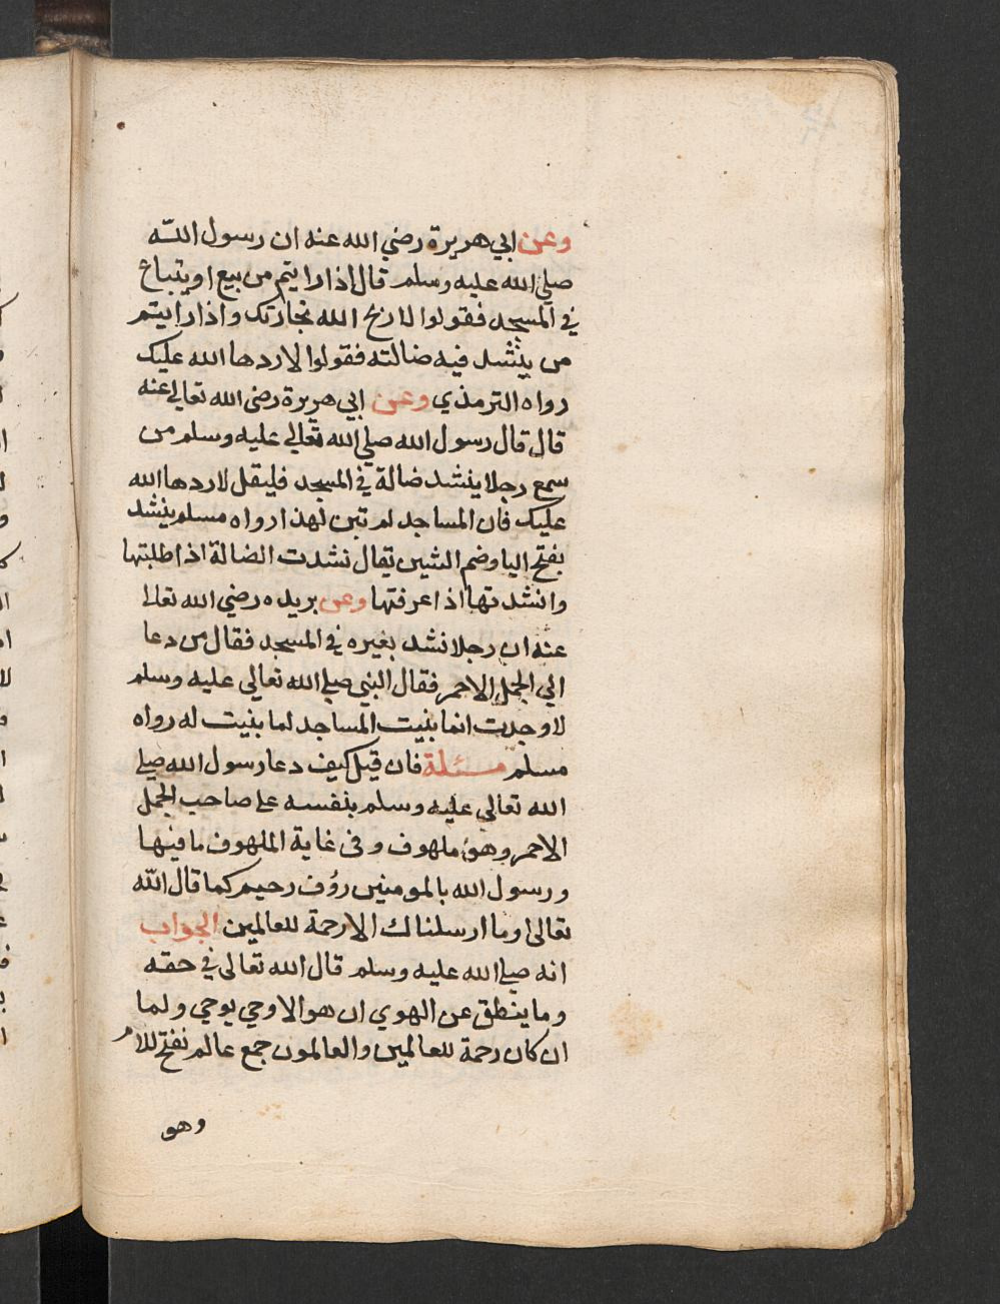 وعن ابي هريرة رضي الله عنه ان رسول اللّه
صلي الله عليه وسلم قال اذا رايتم من بيع او يتباع
في المسجد فقولوا لا اربح الله تجارتك واذا رايتم
من ينشد فيه ضالته فقولوا لا ردها الله عليك
رواه الترمذي وعن ابي هريرة رضي الله تعالي عنه
قال قال رسول الله صلي الله تعالي عليه وسلم من
سمع رجلا ينشد ضالة في المسجد فليقل لا ردها الله
عليك فان المساجد لم تبن لهذا رواه مسلم ينشد
بفتح اليا وضم الشين يقال نشدت الضالة اذا طلبتها
وانشدتها اذا عرفتها وعن بريده رضي الله تعالا
عنه ان رجلا نشد بغيره في المسجد فقال من دعا
الي الجمل الاحمر فقال النبي صلي الله تعالي عليه وسلم
لا وجدت انما بنيت المساجد لما بنيت له رواه
مسلم مسئلة فان قيل كيف دعا رسول الله صلي
الله تعالي عليه وسلم بنفسه على صاحب الجمل
الاحمر وهو ملهوف وفى غاية الملهوف ما فيها
ورسول الله بالمومنين رؤف رحيم كما قال اللّه
تعالى وما ارسلناك الا رحمة للعالمين الجواب
انه صلي الله عليه وسلم قال الله تعالى في حقه
وما ينطق عن الهوي ان هو الا وحي يوحي ولما
ان كان رحمة للعالمين والعالمون جمع عالم بفتح اللام
وهو